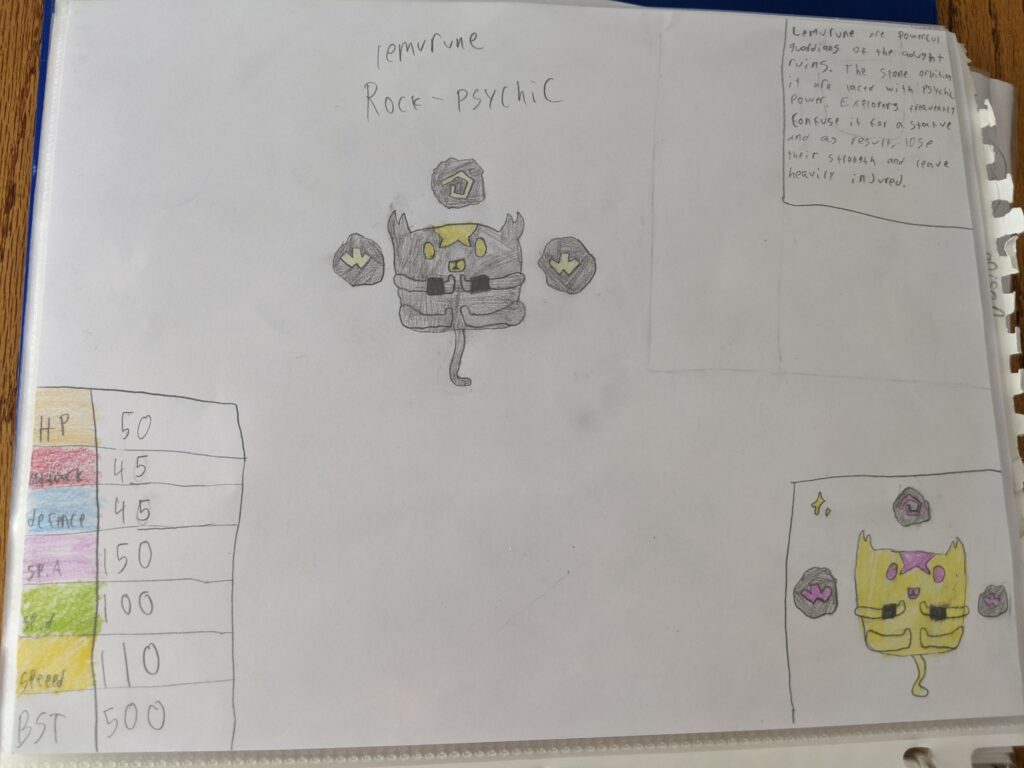 lemurune
Rock-psychic
Lemurune are powerful
guardians of the
ruins. The stone orbiting
it are laced with psychic
power. Explorers frequently
Confuse it for a statue
and as result, lose
their strength and leave
heavily injured.
HP 50
attack 45
defence 45
SP. A 150
SP. d 100
speed 110
BST 500